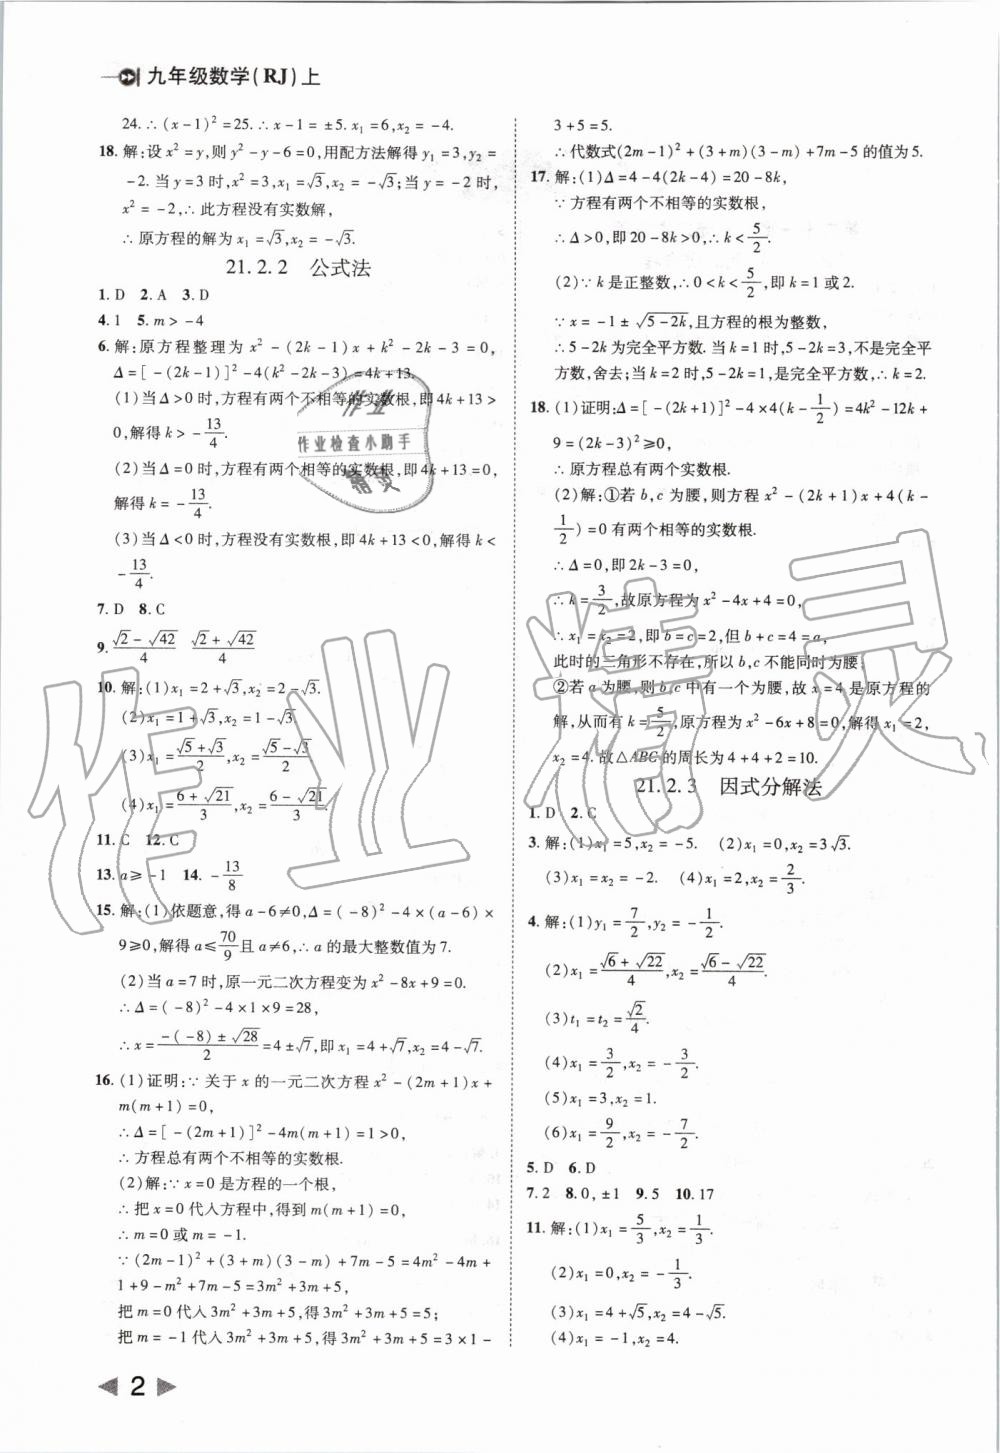 九年级数学(RJ)上
24.∴(x-1)²=25.∴x-1=±5.x₁=6,x₂=-4.
18.解:设x²=y,则y²-y-6=0,用配方法解得y₁=3,y₂=
-2.当y=3时,x²=3,x₁=√3,x₂=-√3;当y=-2时,
x²=-2,∴此方程没有实数解,
∴原方程的解为x₁=√3,x₂=-√3.
21.2.2 公式法
1.D 2.A 3.D
4.1 5.m>-4
6.解:原方程整理为x²-(2k-1)x+k²-2k-3=0,
Δ=[-(2k-1)]²-4(k²-2k-3)=4k+13.
(1)当Δ>0时,方程有两个不相等的实数根,即4k+13>
0,解得k>-13/4.
(2)当Δ=0时,方程有两个相等的实数根,即4k+13=0,
解得k=-13/4.
(3)当Δ<0时,方程没有实数根,即4k+13<0,解得k<
-13/4.
7.D 8.C
9.(√2-√42)/4 (√2+√42)/4
10.解:(1)x₁=2+√3,x₂=2-√3.
(2)x₁=1+√3,x₂=1-√3.
(3)x₁=(√5+√3)/2,x₂=(√5-√3)/2.
(4)x₁=(6+√21)/3,x₂=(6-√21)/3.
11.C 12.C
13.a≥-1 14.-13/8
15.解:(1)依题意,得a-6≠0,Δ=(-8)²-4×(a-6)×
9≥0,解得a≤70/9且a≠6,∴a的最大整数值为7.
(2)当a=7时,原一元二次方程变为x²-8x+9=0.
∴Δ=(-8)²-4×1×9=28,
∴x=(-(-8)±√28)/2=4±√7,即x₁=4+√7,x₂=4-√7.
16.(1)证明:∵关于x的一元二次方程x²-(2m+1)x+
m(m+1)=0,
∴Δ=[-(2m+1)]²-4m(m+1)=1>0,
∴方程总有两个不相等的实数根.
(2)解:∵x=0是方程的一个根,
∴把x=0代入方程中,得到m(m+1)=0,
∴m=0或m=-1.
∵(2m-1)²+(3+m)(3-m)+7m-5=4m²-4m+
1+9-m²+7m-5=3m²+3m+5,
把m=0代入3m²+3m+5,得3m²+3m+5=5;
把m=-1代入3m²+3m+5,得3m²+3m+5=3×1-
3+5=5.
∴代数式(2m-1)²+(3+m)(3-m)+7m-5的值为5.
17.解:(1)Δ=4-4(2k-4)=20-8k,
∵方程有两个不相等的实数根,
∴Δ>0,即20-8k>0,∴k<5/2.
(2)∵k是正整数,∴0<k<5/2,即k=1或2.
∵x=-1±√(5-2k),且方程的根为整数,
∴5-2k为完全平方数.当k=1时,5-2k=3,不是完全平
方数,舍去;当k=2时,5-2k=1,是完全平方数,∴k=2.
18.(1)证明:Δ=[-(2k+1)]²-4×4(k-1/2)=4k²-12k+
9=(2k-3)²≥0,
∴原方程总有两个实数根.
(2)解:①若b,c为腰,则方程x²-(2k+1)x+4(k-
1/2)=0有两个相等的实数根.
∴Δ=0,即2k-3=0,
∴k=3/2,故原方程为x²-4x+4=0,
∴x₁=x₂=2,即b=c=2,但b+c=4=a,
此时的三角形不存在,所以b,c不能同时为腰;
②若a为腰,则b,c中有一个为腰,故x=4是原方程的
解,从而有k=5/2,故原方程为x²-6x+8=0,解得x₁=2,
x₂=4.故△ABC的周长为4+4+2=10.
21.2.3 因式分解法
1.D 2.C
3.解:(1)x₁=5,x₂=-5. (2)x₁=0,x₂=3√3.
(3)x₁=x₂=-2. (4)x₁=2,x₂=2/3.
4.解:(1)y₁=7/2,y₂=-1/2.
(2)x₁=(√6+√22)/4,x₂=(√6-√22)/4.
(3)t₁=t₂=√2/4.
(4)x₁=3/2,x₂=-3/2.
(5)x₁=3,x₂=1.
(6)x₁=9/2,x₂=-7/2.
5.D 6.D
7.2 8.0,±1 9.5 10.17
11.解:(1)x₁=5/3,x₂=1/3.
(2)x₁=0,x₂=-1/3.
(3)x₁=4+√5,x₂=4-√5.
(4)x₁=-1,x₂=4.
2
作业
作业检查小助手
精灵
作业精灵